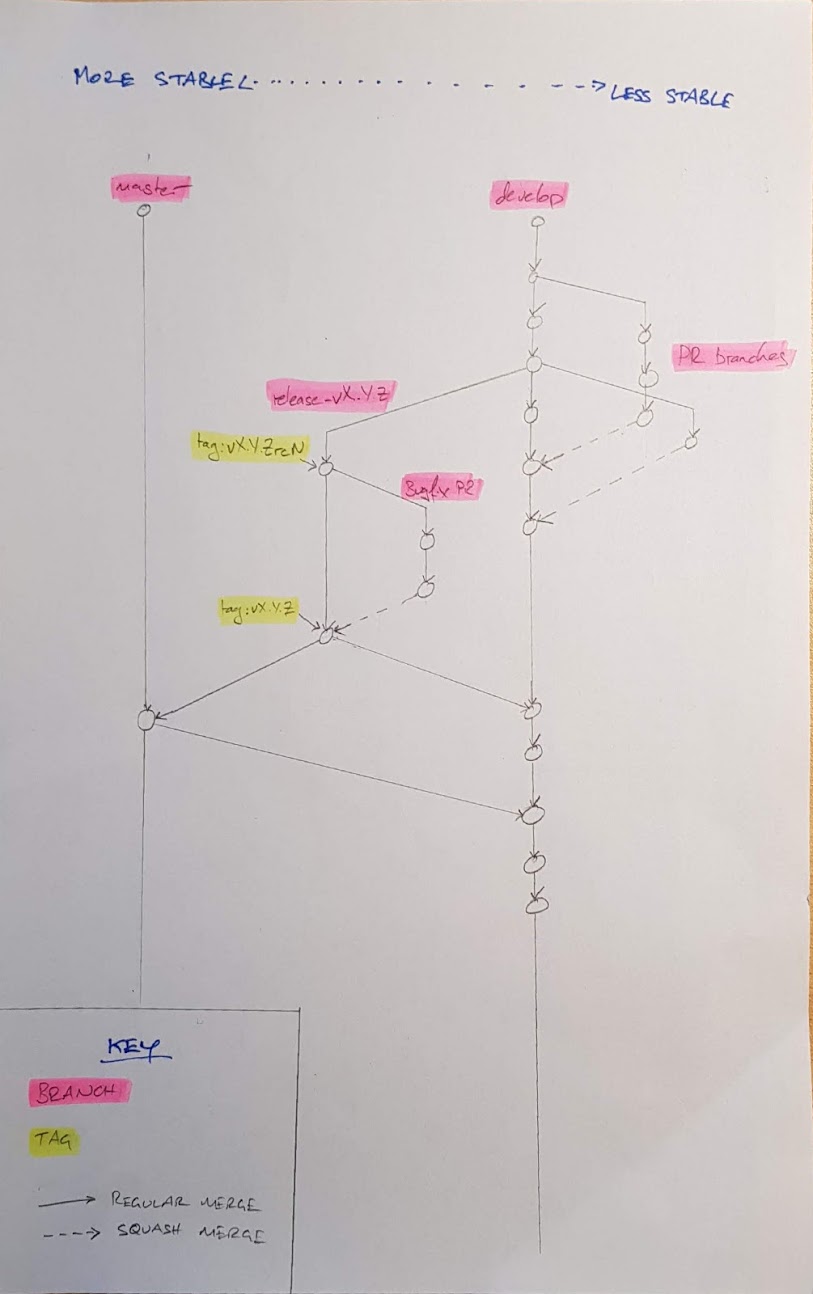 MORE STABLE
LESS STABLE
master
develop
PR branches
release-vX.Y.Z
tag:vX.Y.ZrcN
Bugfix PR
tag:vX.Y.Z
KEY
BRANCH
TAG
REGULAR MERGE
SQUASH MERGE